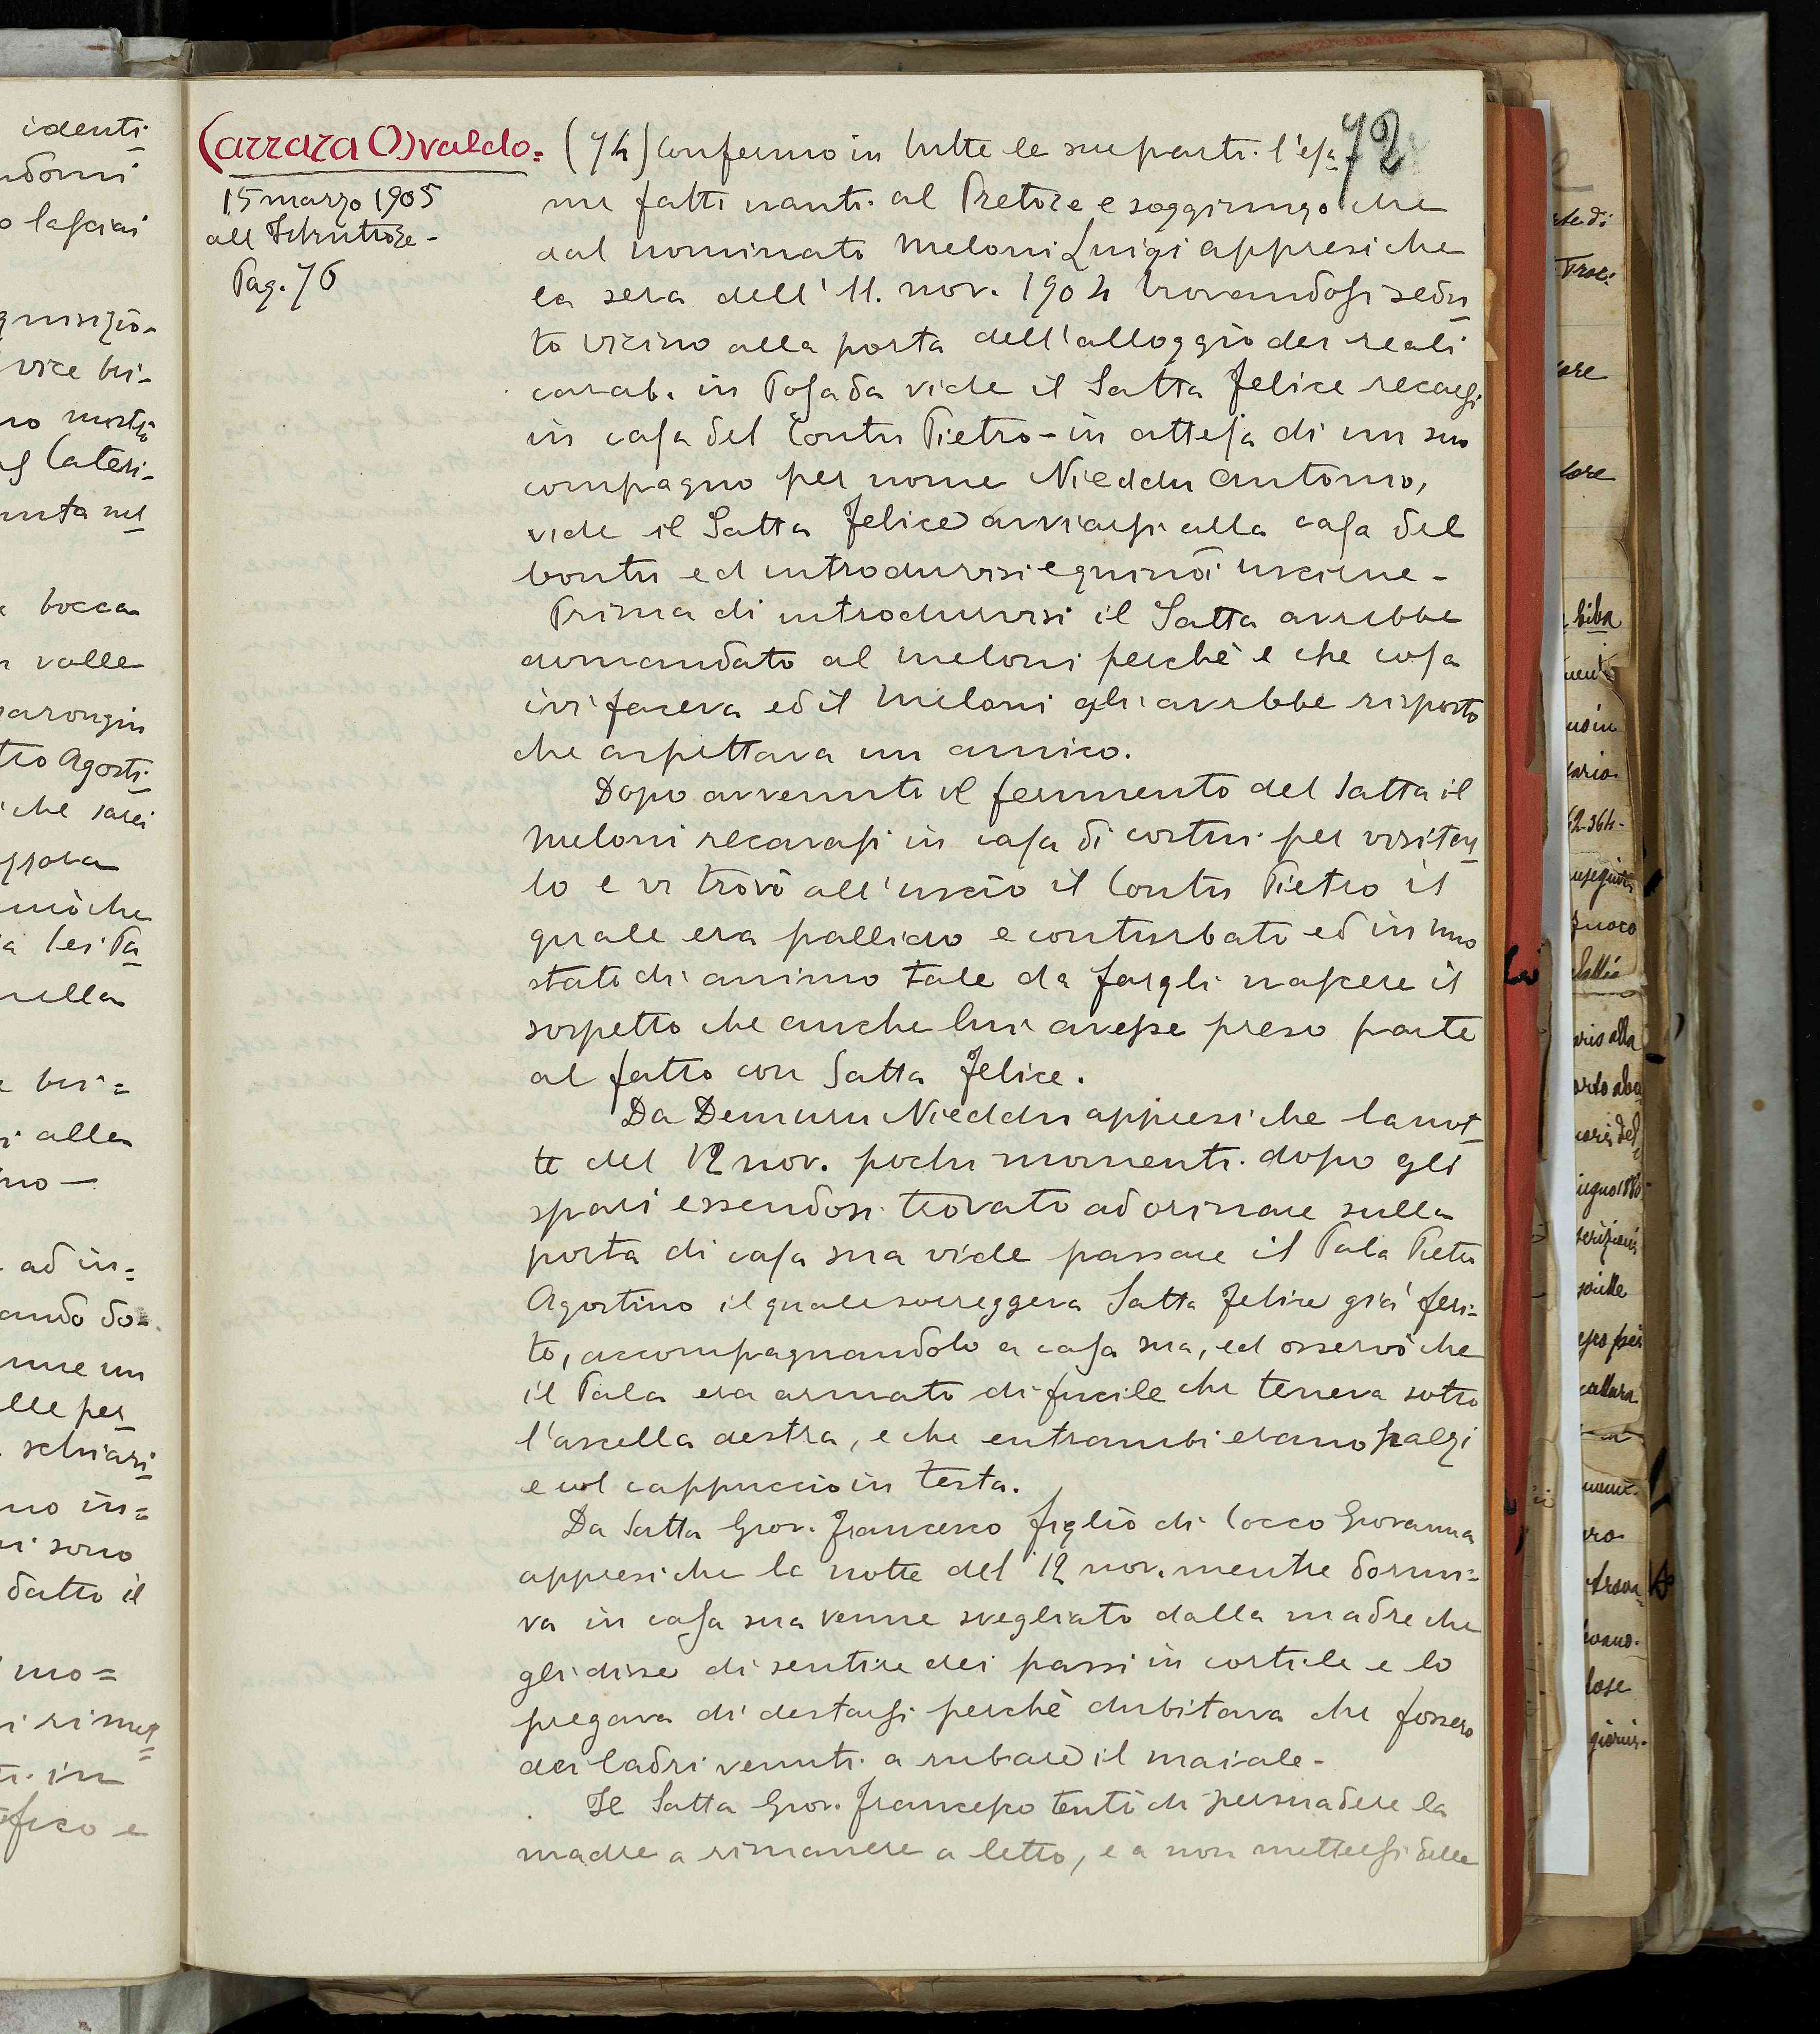 72
Carrara Osvaldo =
15 marzo 1905
all'Istruttore -
Pag. 76
(74) Confermo in tutte le sue parti l'esa
me fatto nanti al Pretore e soggiungo che
dal nominato Meloni Luigi appresi che
la sera dell'11. nov. 1904 trovandosi sedu
to vicino alla porta dell'alloggio dei reali
carab. in Posada vide il Satta Felice recarsi
in casa del Contu Pietro - in attesa di un suo
compagno per nome Nieddu Antonio,
vide il Satta Felice avviarsi alla casa del
Contu ed introdurvisi e quindi uscirne -
Prima di introdurvisi il Satta avrebbe
domandato al Meloni perchè e che cosa
ivi faceva ed il Meloni gli avrebbe risposto
che aspettava un amico.
Dopo avvenuto il ferimento del Satta il
Meloni recavasi in casa di costui per visitar
lo e vi trovò all'uscio il Contu Pietro il
quale era pallido e conturbato ed in uno
stato di animo tale da fargli nascere il
sospetto che anche lui avesse preso parte
al fatto con Satta Felice.
Da Demuru Nieddu appresi che la not
te del 12 nov. pochi momenti dopo gli
spari essendosi trovato ad orinare sulla
porta di casa sua vide passare il Pala Pietro
Agostino il quale sorreggeva Satta Felice già feri=
to, accompagnandolo a casa sua, ed osservò che
il Pala era armato di fucile che teneva sotto
l'ascella destra, e che entrambi erano scalzi
e col cappuccio in testa.
Da Satta Giov. Francesco figlio di Cocco Giovanna
appresi che la notte del 12 nov. mentre dormi=
va in casa sua venne svegliato dalla madre che
gli disse di sentire dei passi in cortile e lo
pregava di destarsi perchè dubitava che fossero
dei ladri venuti a rubare il maiale -
Il Satta Giov. Francesco tentò di persuadere la
madre a rimanere a letto, e a non mettersi delle